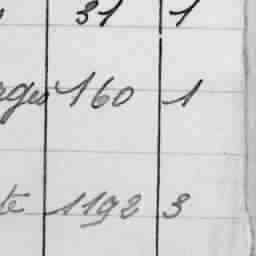 31 1
160 1
te 1192 3